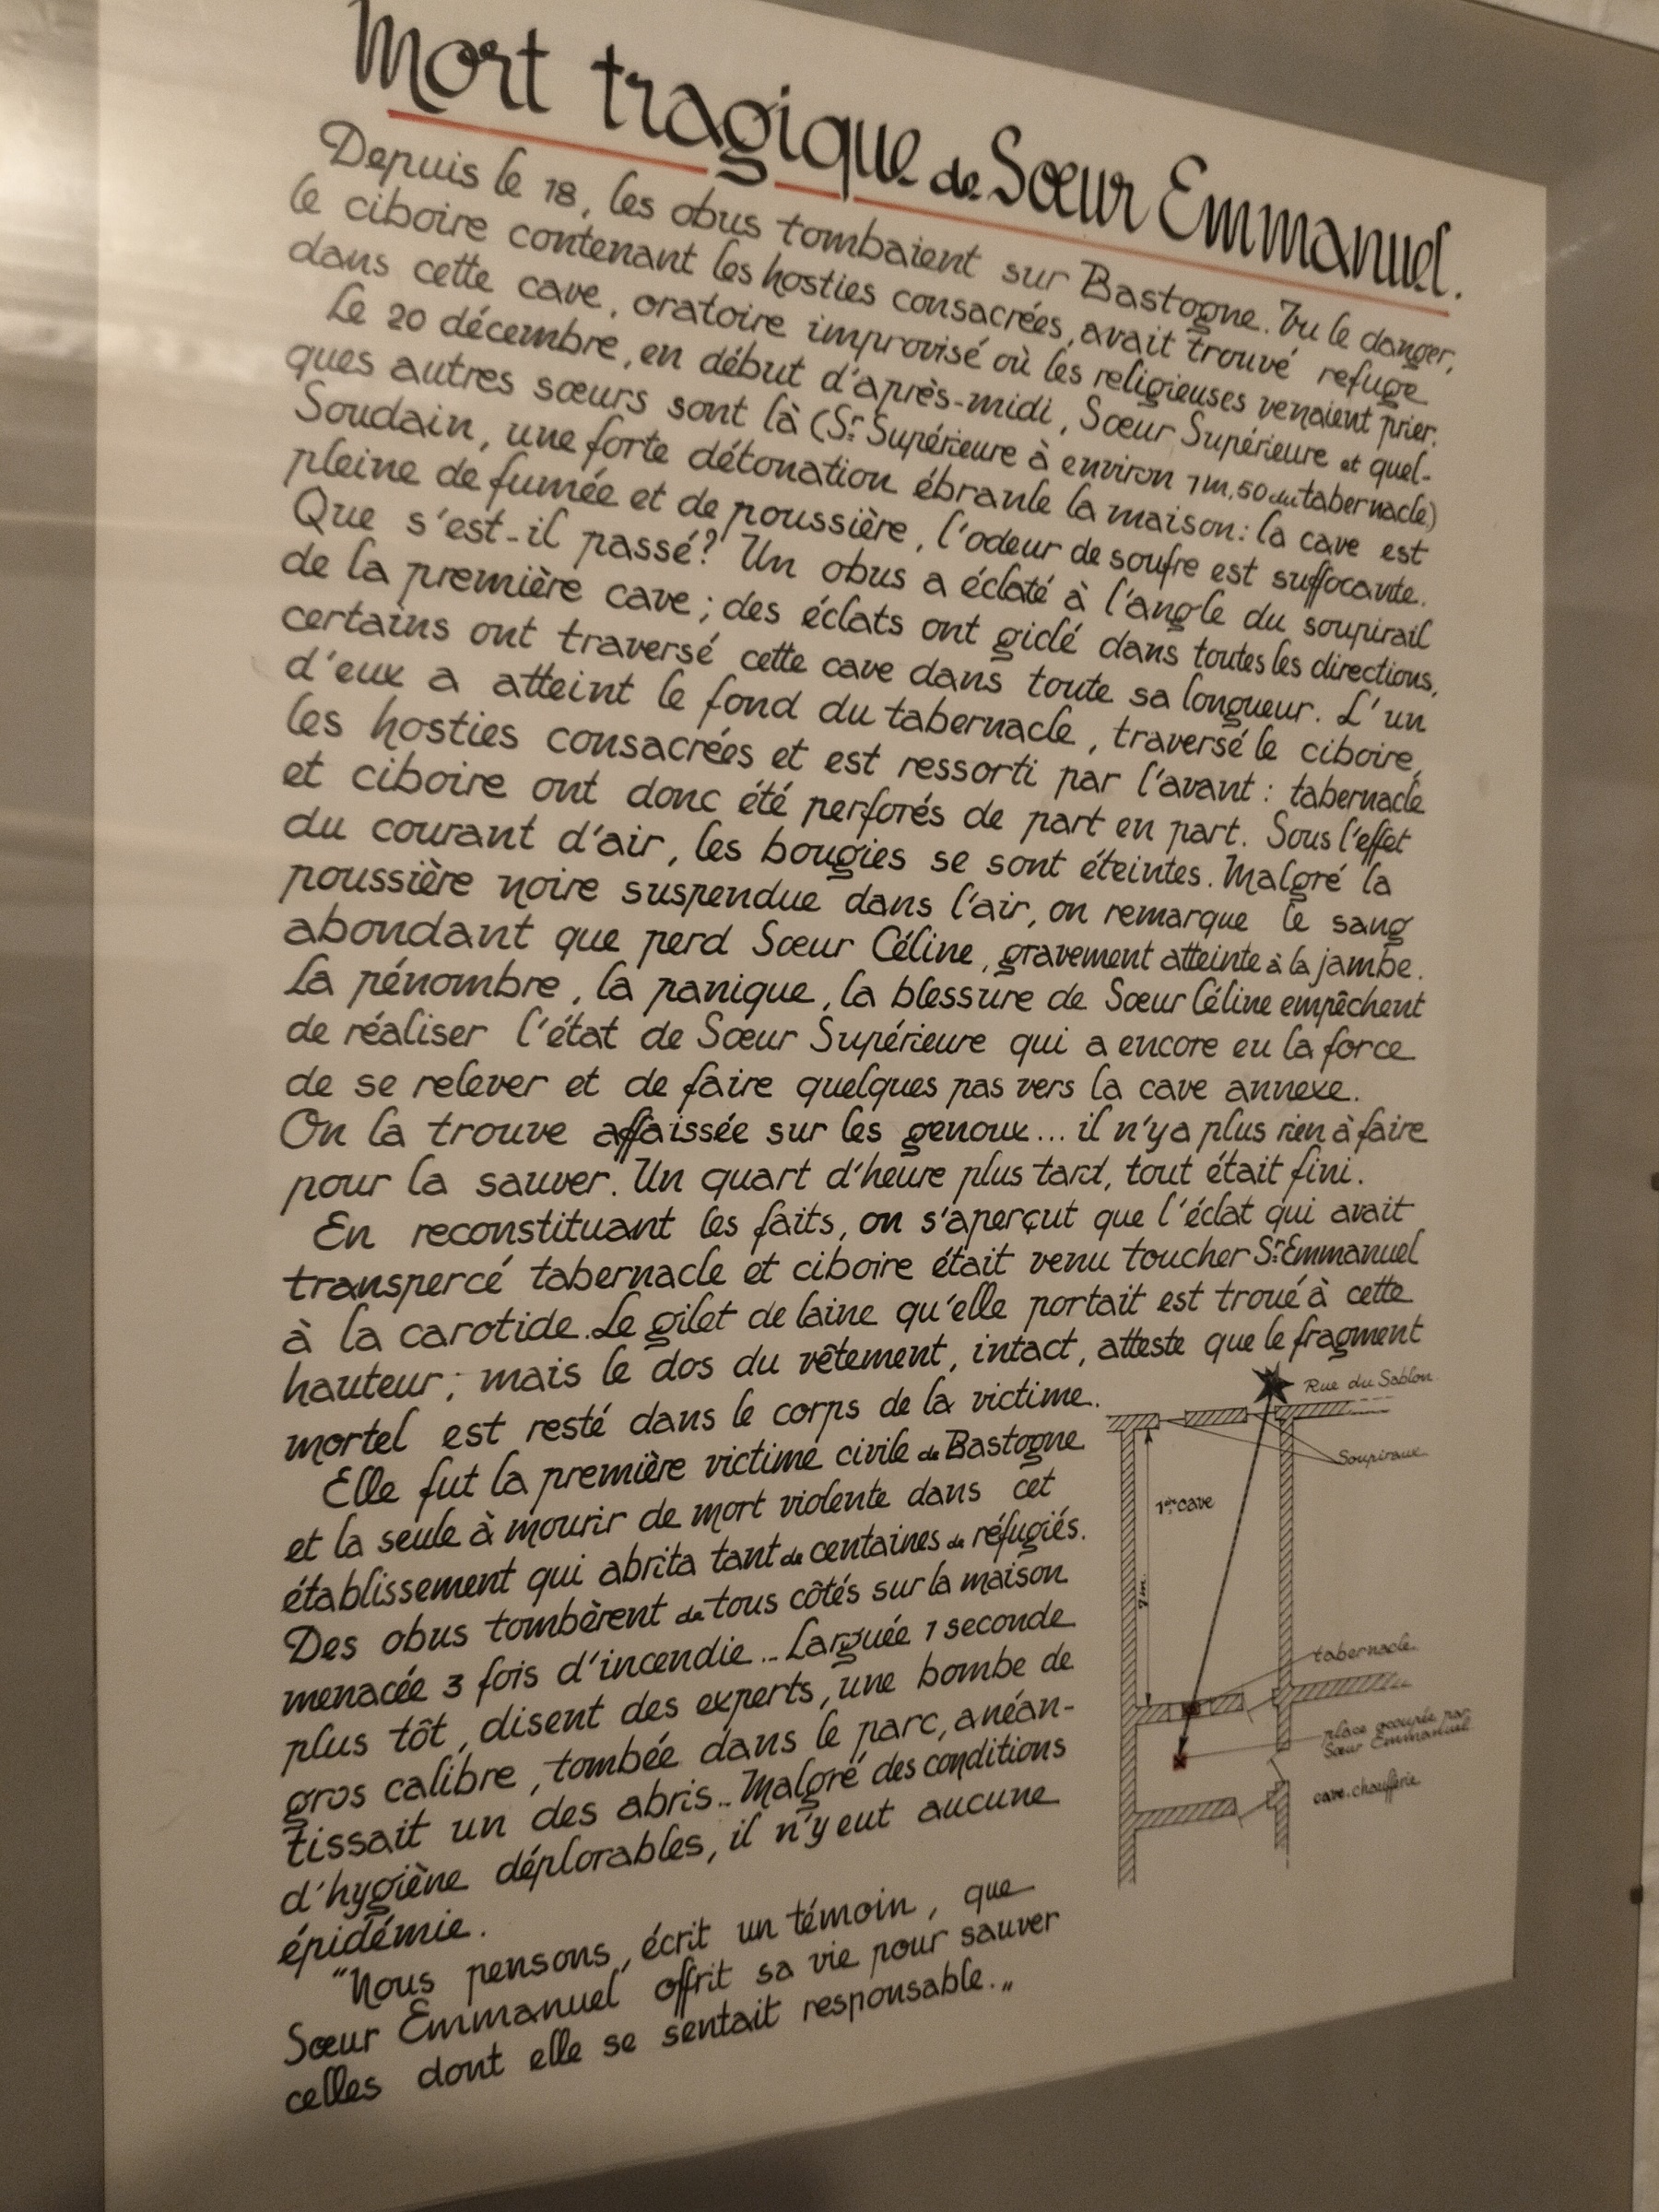 Mort tragique de Sœur Emmanuel.
Depuis le 18, les obus tombaient sur Bastogne. Vu le danger,
le ciboire contenant les hosties consacrées, avait trouvé refuge
dans cette cave, oratoire improvisé où les religieuses venaient prier.
Le 20 décembre, en début d'après-midi, Sœur Supérieure et quel-
ques autres sœurs sont là (Sr Supérieure à environ 1m,50 du tabernacle)
Soudain, une forte détonation ébranle la maison : la cave est
pleine de fumée et de poussière, l'odeur de soufre est suffocante.
Que s'est-il passé ? Un obus a éclaté à l'angle du soupirail
de la première cave ; des éclats ont giclé dans toutes les directions,
certains ont traversé cette cave dans toute sa longueur. L'un
d'eux a atteint le fond du tabernacle, traversé le ciboire,
les hosties consacrées et est ressorti par l'avant : tabernacle
et ciboire ont donc été perforés de part en part. Sous l'effet
du courant d'air, les bougies se sont éteintes. Malgré la
poussière noire suspendue dans l'air, on remarque le sang
abondant que perd Sœur Céline, gravement atteinte à la jambe.
La pénombre, la panique, la blessure de Sœur Céline empêchent
de réaliser l'état de Sœur Supérieure qui a encore eu la force
de se relever et de faire quelques pas vers la cave annexe.
On la trouve affaissée sur les genoux... il n'y a plus rien à faire
pour la sauver. Un quart d'heure plus tard, tout était fini.
En reconstituant les faits, on s'aperçut que l'éclat qui avait
transpercé tabernacle et ciboire était venu toucher Sr Emmanuel
à la carotide. Le gilet de laine qu'elle portait est troué à cette
hauteur ; mais le dos du vêtement, intact, atteste que le fragment
mortel est resté dans le corps de la victime.
Elle fut la première victime civile de Bastogne
et la seule à mourir de mort violente dans cet
établissement qui abrita tant de centaines de réfugiés.
Des obus tombèrent de tous côtés sur la maison
menacée 3 fois d'incendie... Larguée 1 seconde
plus tôt, disent des experts, une bombe de
gros calibre, tombée dans le parc, anéan-
tissait un des abris... Malgré des conditions
d'hygiène déplorables, il n'y eut aucune
épidémie.
"Nous pensons, écrit un témoin, que
Sœur Emmanuel offrit sa vie pour sauver
celles dont elle se sentait responsable."
Rue du Sablon
Soupiraux
1ère cave
7m.
tabernacle
place occupée par
Sœur Emmanuel
cave.chaufferie